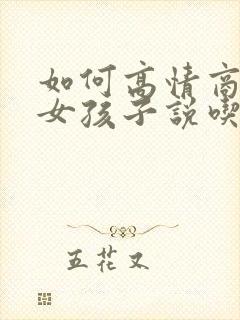 如何高情商
女孩子說喫
五花又